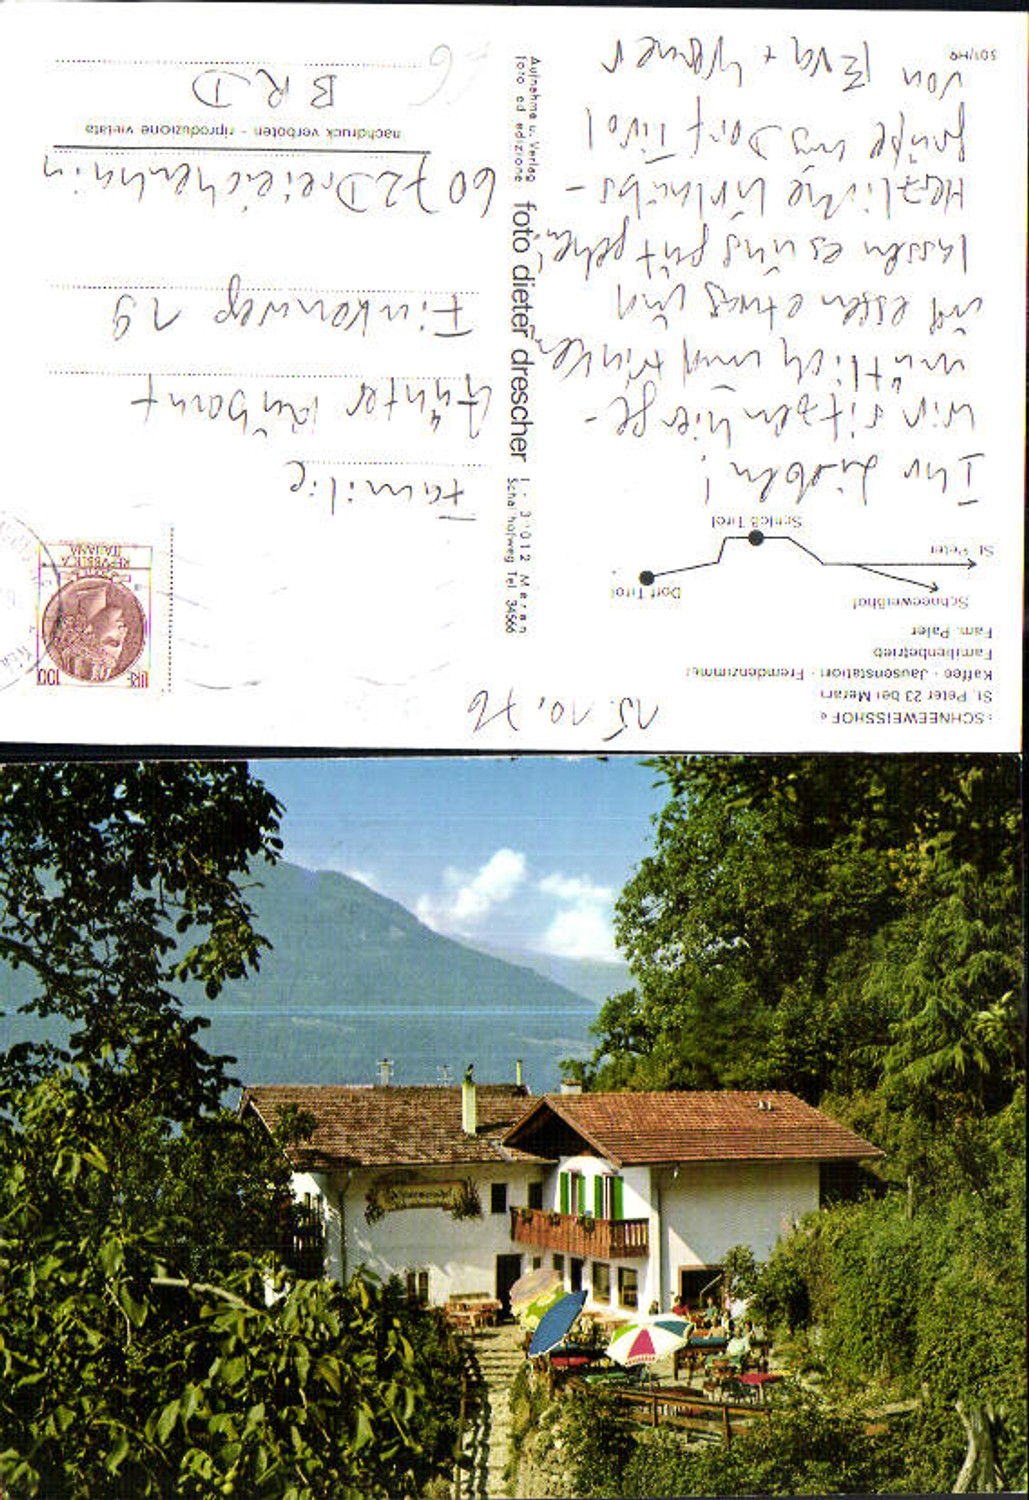 »SCHNEEWEISSHOF«
St. Peter 23 bei Meran
Kaffee - Jausenstation - Fremdenzimmer
Familienbetrieb
Fam. Paler
Schneeweißhof
St. Peter
Dorf Tirol
Schloß Tirol
15.10.76
Ihr Lieben!
Wir sitzen hier ge-
mütlich und trinken
und essen etwas und
lassen es uns gut gehen!
Herzliche Urlaubs-
grüße aus Dorf Tirol
von Eva + Werner
501/H9
Aufnahme u. Verlag
foto ed edizione
foto dieter drescher
I - 39012 Meran
Schafhofweg Tel. 34566
LIRE 100
REPVBBLICA
ITALIANA
Familie
Günter
Finkenweg 19
6072 Dreieichenhain
nachdruck verboten - riproduzione vietata
BRD